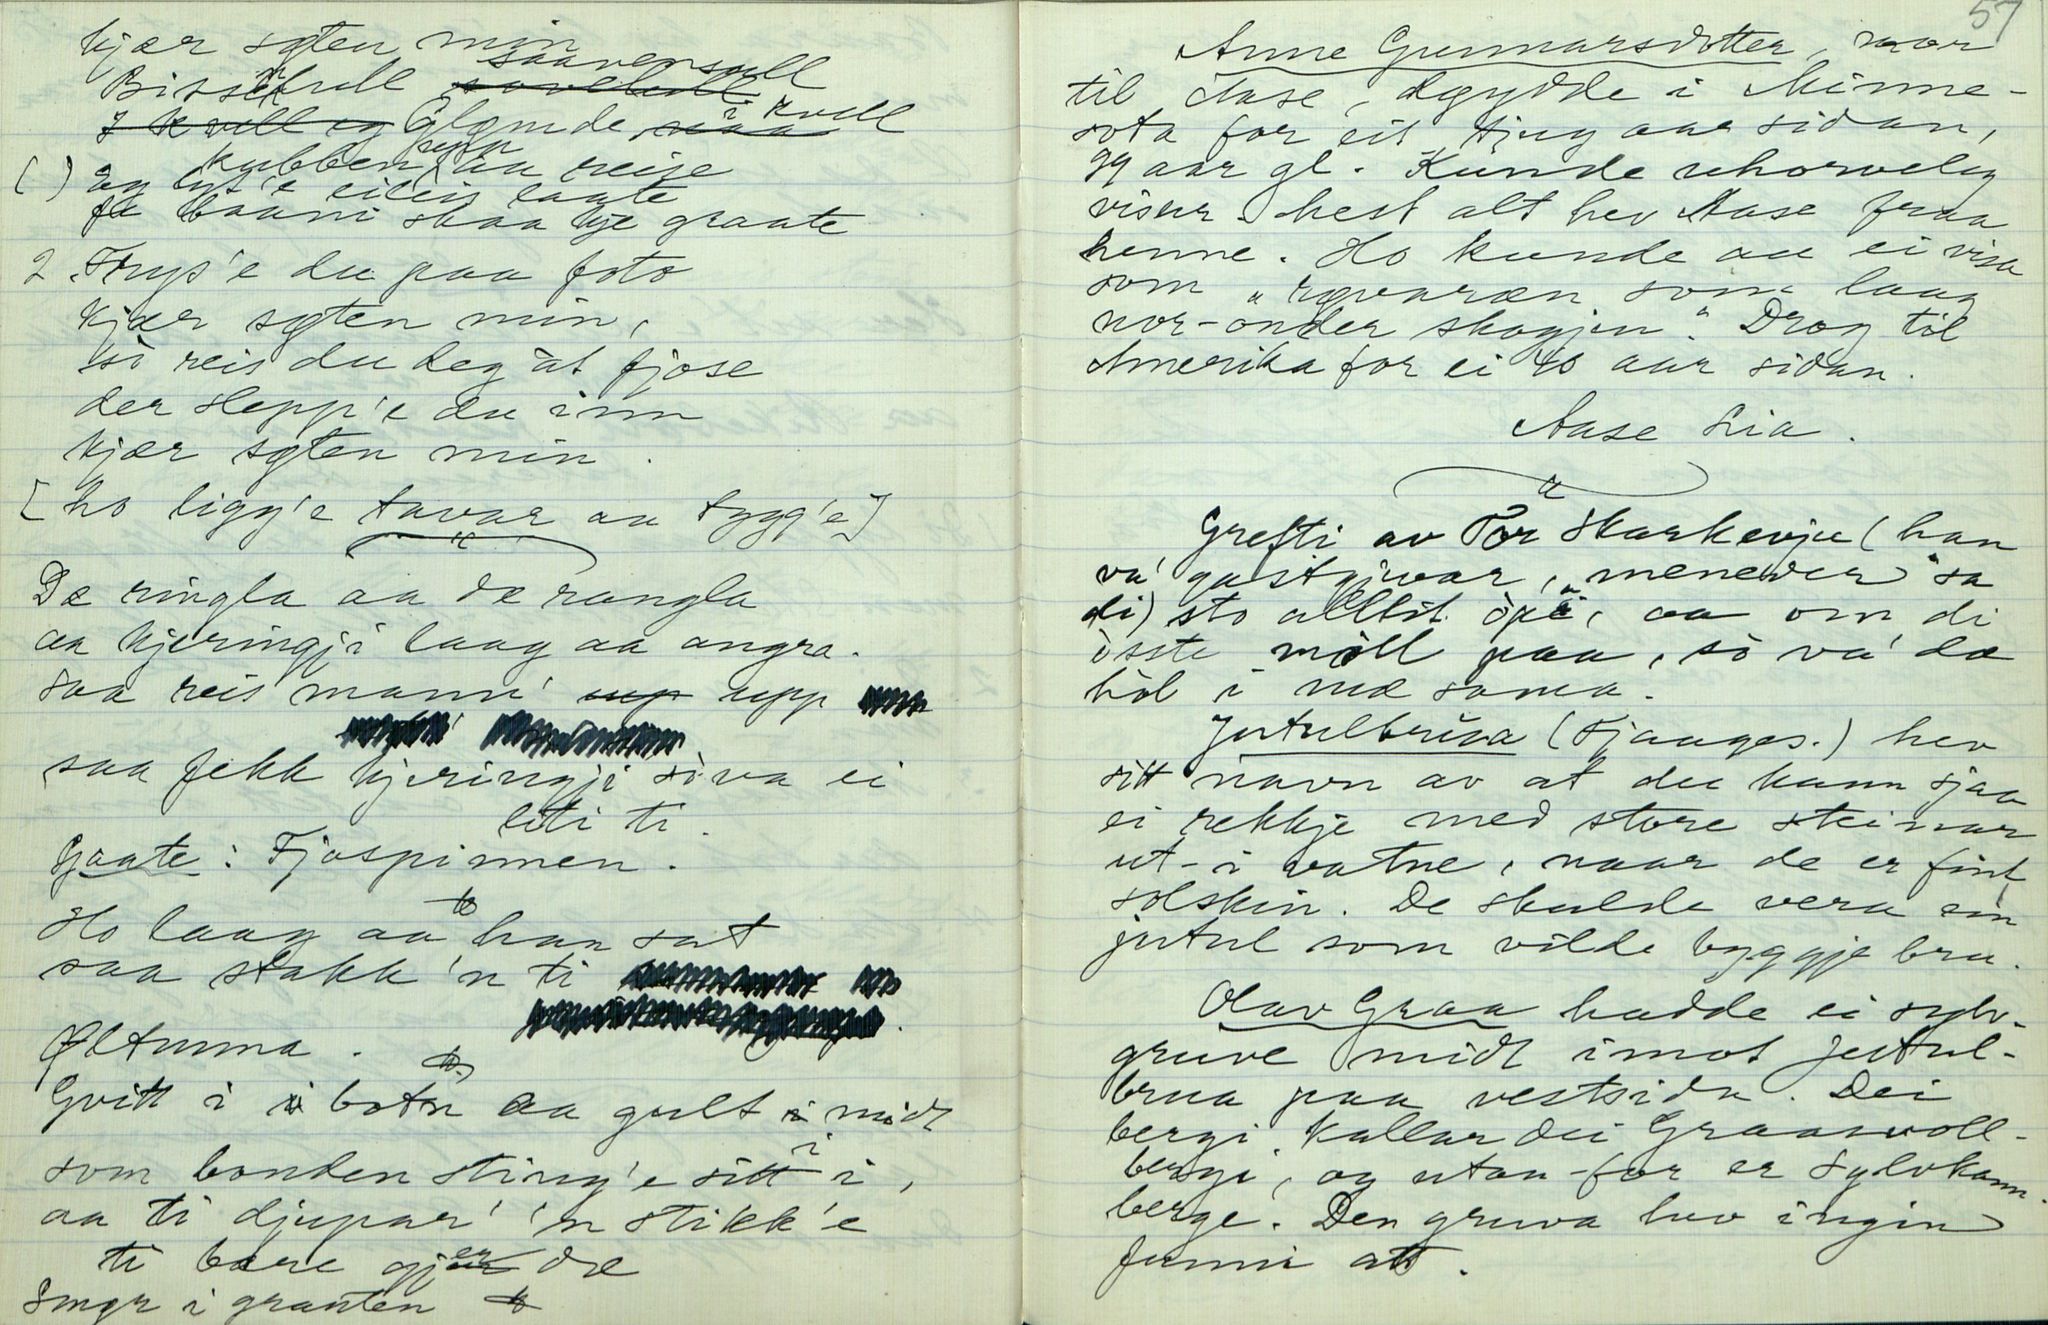 kjær søten min
Bissebull saavensull
Gløymde i kvell
kubben
( ) eg lyt'e eileis laate
fe baani skaa kje graate
2. Frys'e du paa foto
kjær søten min,
sò reis du deg åt fjose
der slepp'e du inn
kjær søten min.
[ho ligg'e tavar aa tygg'e]
De ringla aa dæ rangla
aa kjeringji laag aa angra.
saa reis mann' upp
saa fekk kjeringji sòva ei
liti ti.
Gaate: Fjospinnen.
Ho laag aa han sat
saa stakk 'n ti
Øltunna.
Gvitt i botn aa gult i midt
som bonden sting'e sitt i,
aa ti djupar' 'n stikk'e
ti bære gjer dæ
Smør i grauten
57
Anne Gunnarsdotter, mor
til Aase, døydde i Minne-
sota for eit tjug aar sidan,
99 aar gl. Kunde uhorveleg
visur. Mest alt hev Aase fraa
henne. Ho kunde aa ei visa
som "røvaræn som laag
nor-onder skogjen". Drog til
Amerika for ei 40 aar sidan.
Aase Lia.
Grefti av Tor Skarkevju (han
va' gastgjivar, "menever" sa
di) sto alltit òpi, aa om di
òste moll paa, sò va' dæ
hòl i mæ sama.
Jutulbrua (Tjaages.) hev
sitt navn av at du kann sjaa
ei rekkje med store steinar
ut-i vatne, naar de er fint
solskin. De skulde vera ein
jutul som vilde byggje bru.
Olav Graa hadde ei sylv-
gruve midt imot Jutul-
brua paa vestsida. Dei
bergi kallar dei Graavoll-
bergi, og utan-for er Sylvkann-
berge. Den gruva hev ingin
funni att.